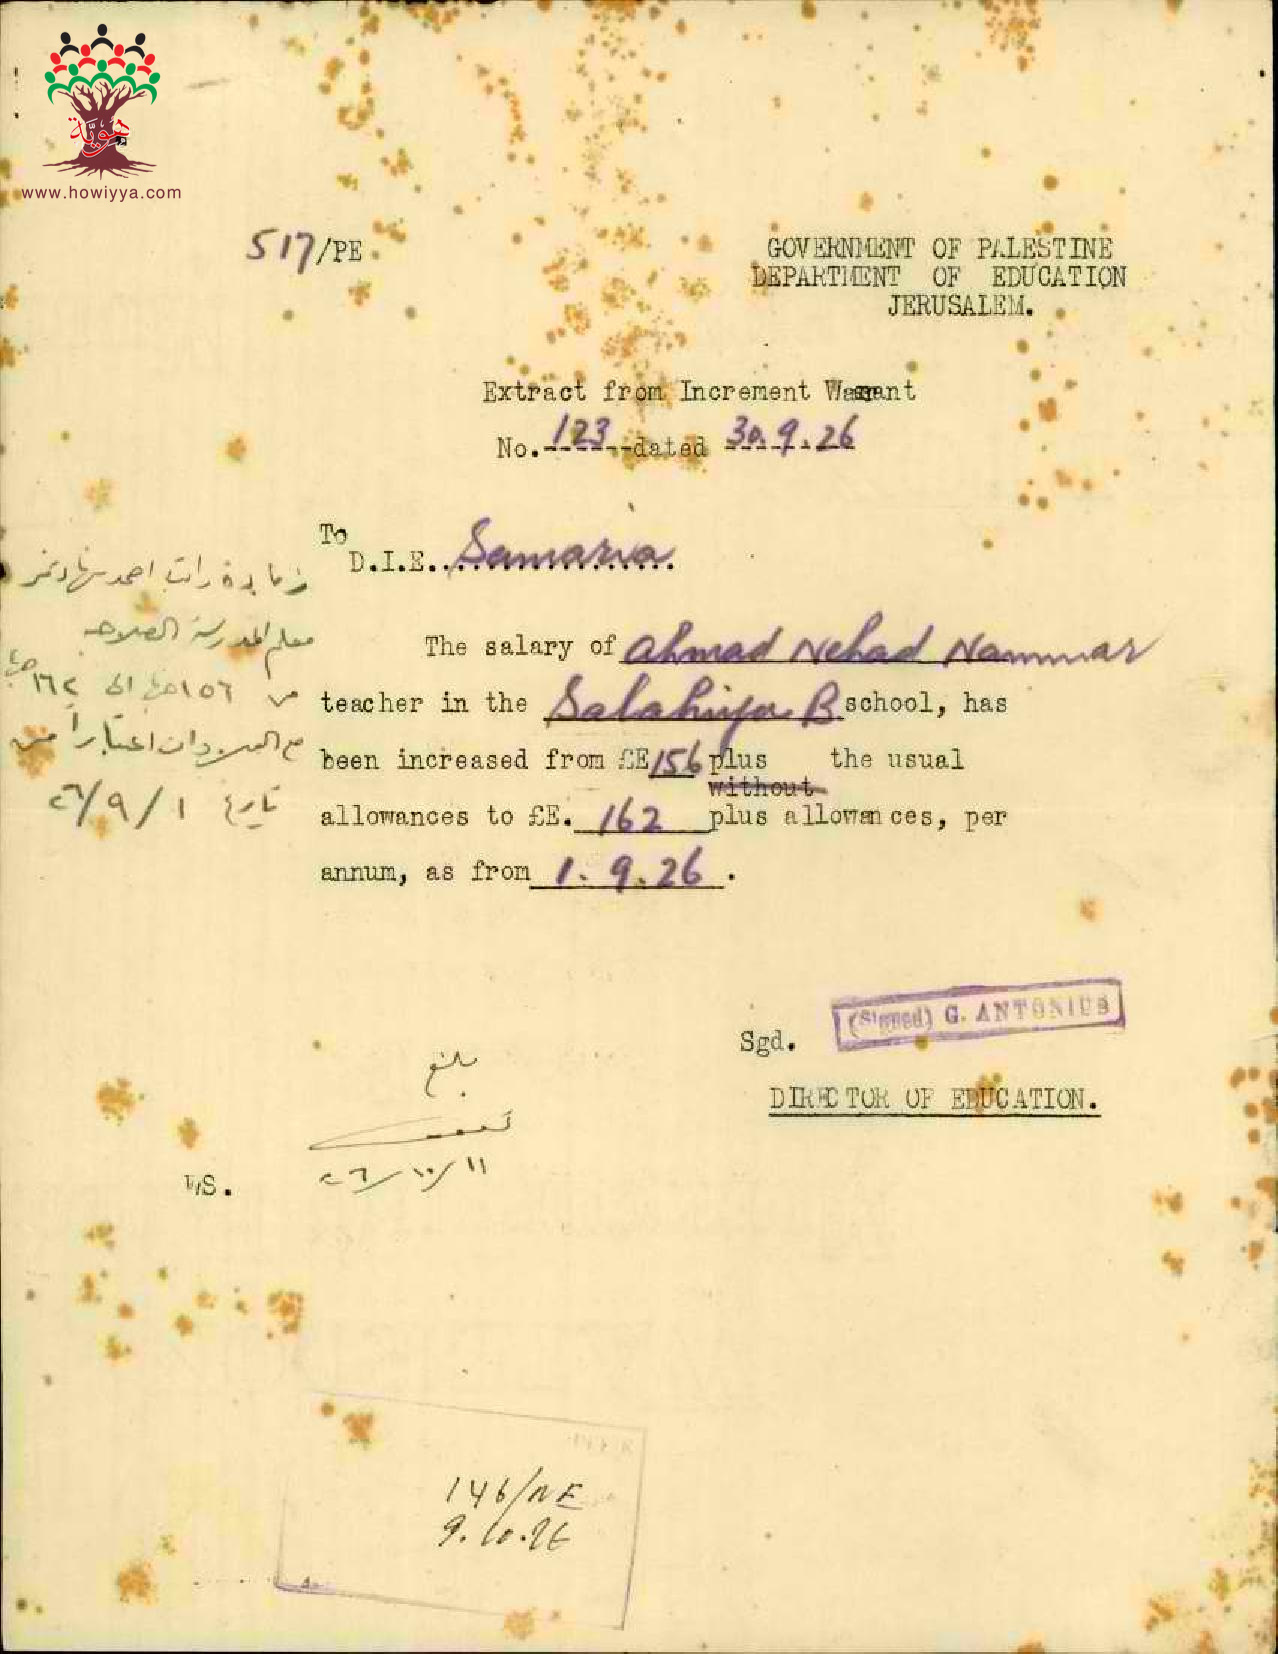 هويّة
www.howiyya.com
517/PE
GOVERNMENT OF PALESTINE
DEPARTMENT OF EDUCATION
JERUSALEM.
Extract from Increment Warrant
No. 123 dated 30.9.26
To
D.I.E. Samaria
The salary of Ahmad Nehad Nammar
teacher in the Salahiya B school, has
been increased from £E 156 plus the usual
without
allowances to £E. 162 plus allowances, per
annum, as from 1.9.26.
زيادة راتب احمد نهاد نمر
معلم المدرسة الصلاحيه
من ١٥٦ الى ١٦٢
مع العلاوات اعتباراً من
تاريخ ١/٩/٢٦
Sgd. (Signed) G. ANTONIUS
DIRECTOR OF EDUCATION.
بلغ
٢٦/١٠/١١
WS.
146/NE
9.10.26